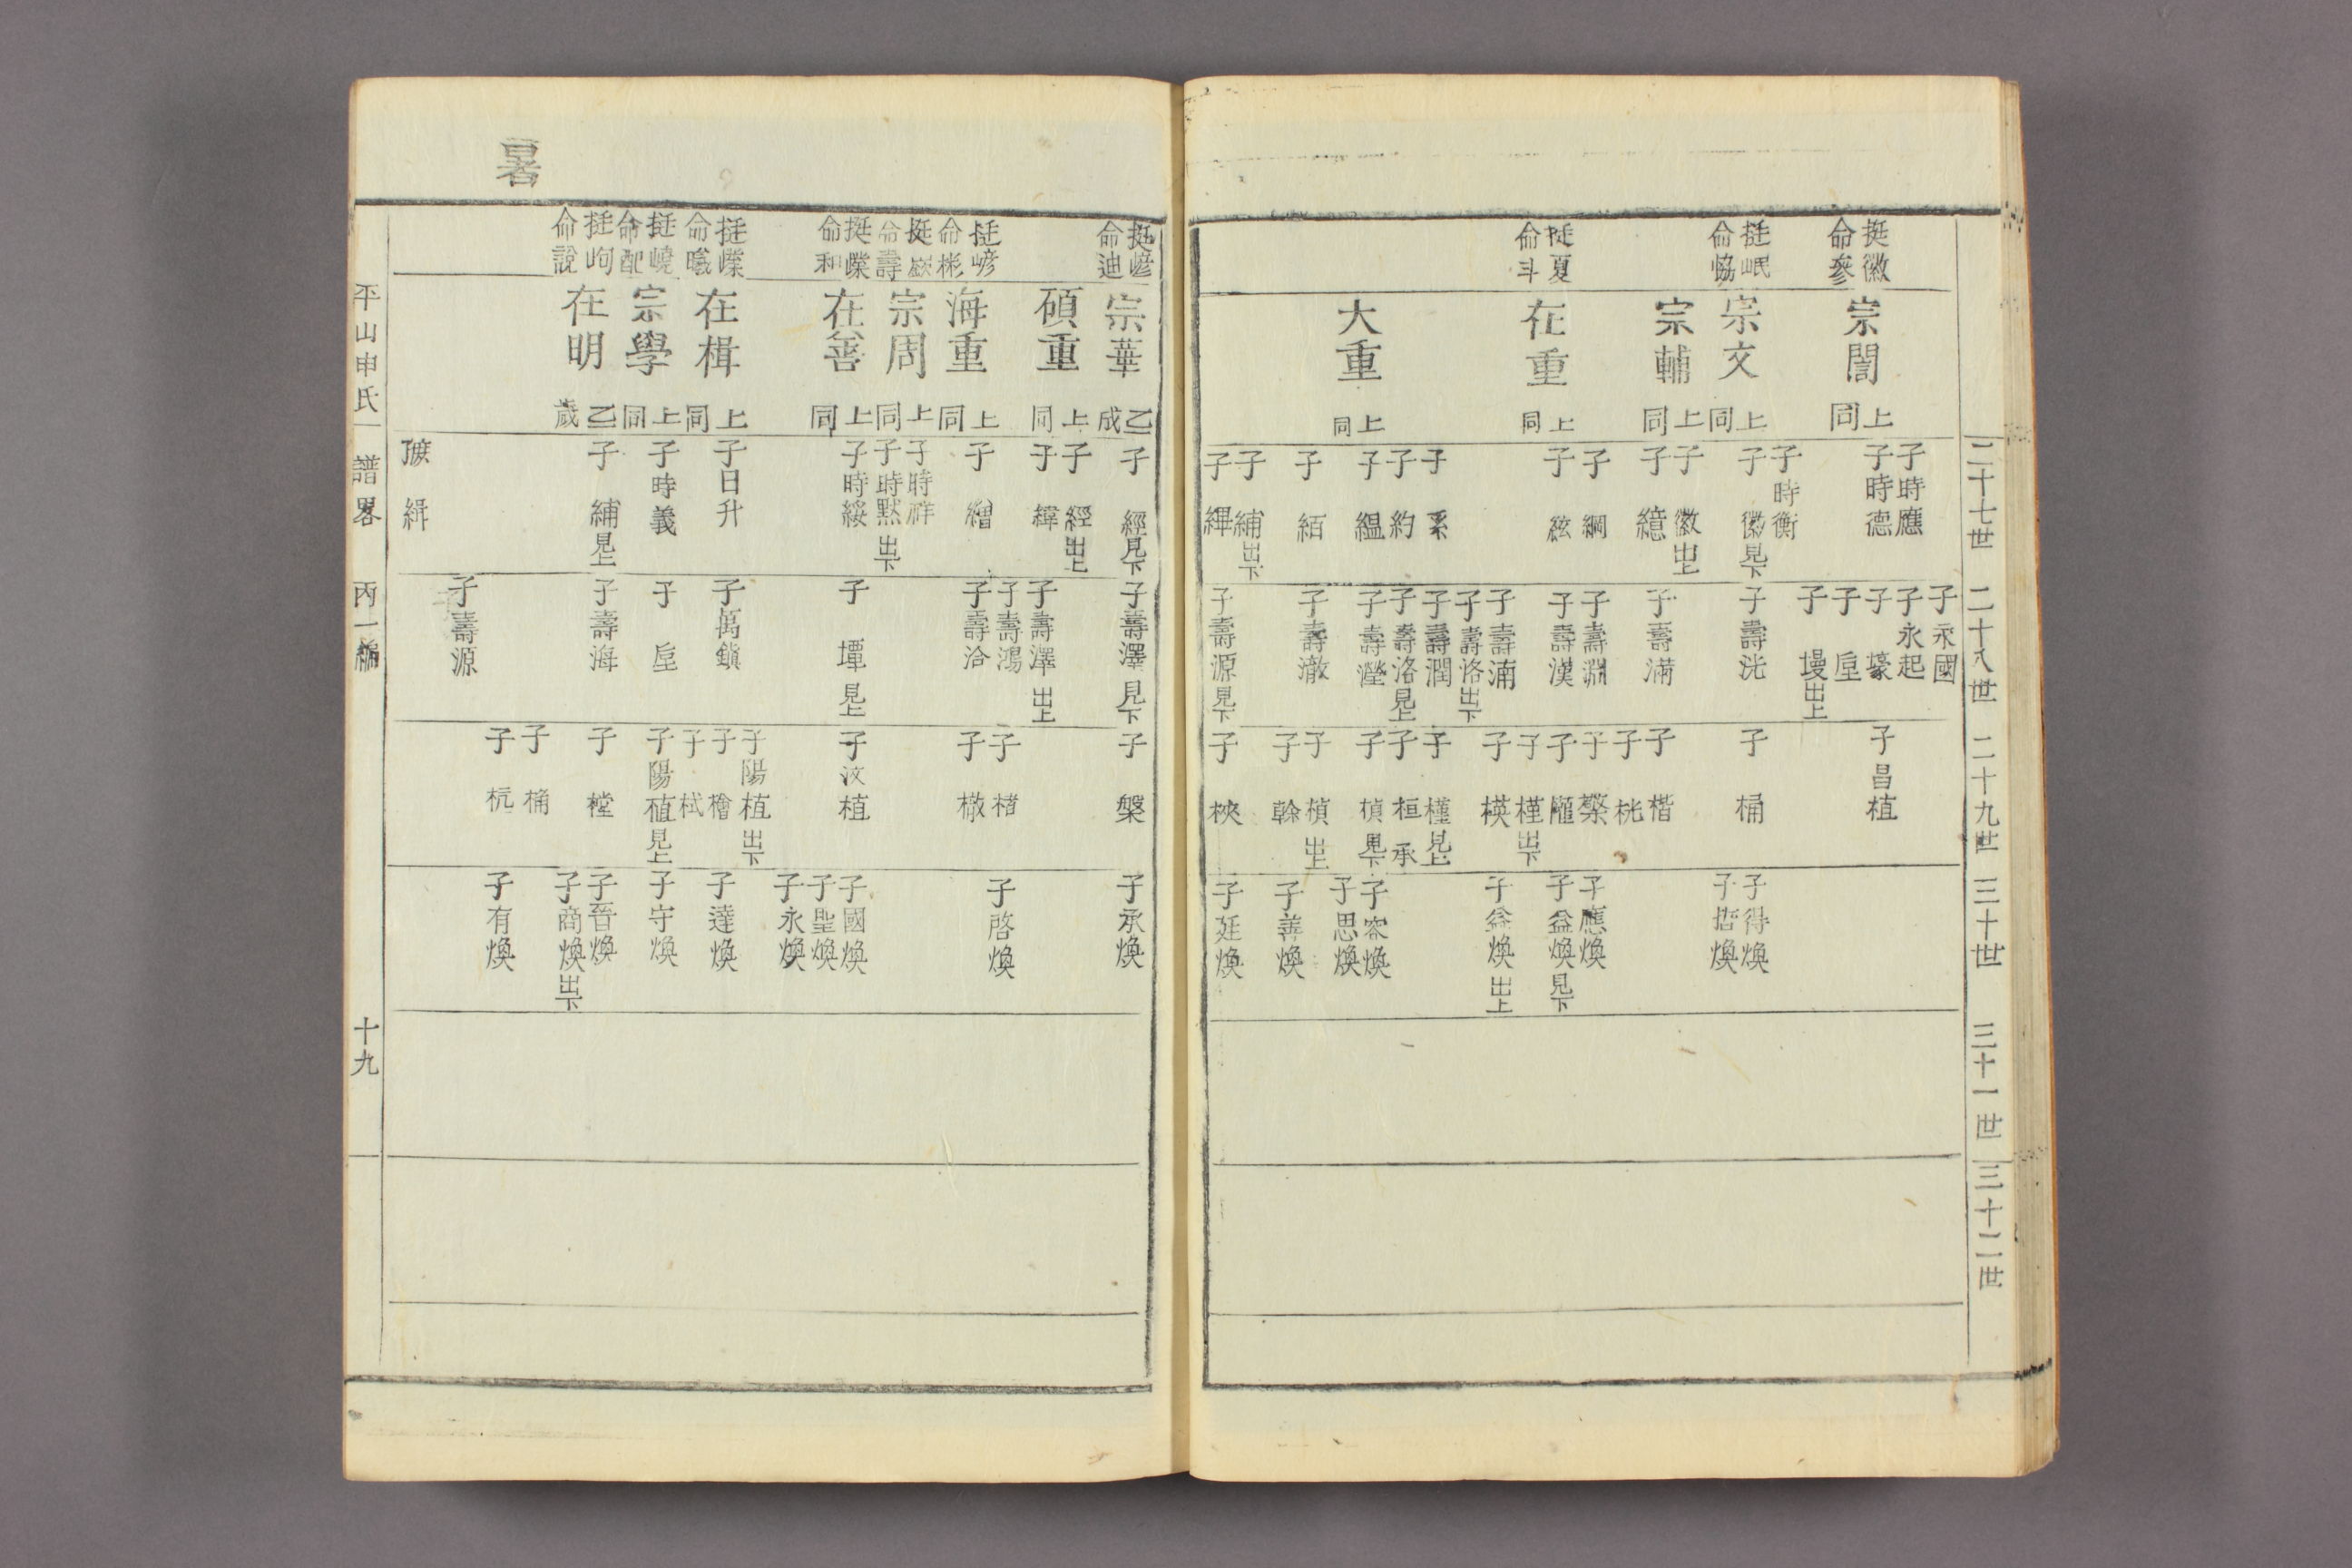 二十七世
二十八世
二十九世
三十世
三十一世
三十二世
挺徽
命參
挺岷
命恊
挺夏
命斗
宗誾 上同
宗文 上同
宗輔 上同
在重 上同
大重 上同
子時應
子時德
子時衡
子 徽見下
子 徽出上
子 繶
子 綱
子 絃
子 系
子 約
子 縕
子 絔
子 緬出下
子 縪
子永國
子永起
子 壕
子 垕
子 墁出上
子壽洸
子壽滿
子壽淵
子壽漢
子壽湳
子壽洛出下
子壽潤
子壽洛見上
子壽瀅
子壽澈
子壽源見下
子昌植
子 桶
子 楷
子 桄
子 槩
子 櫳
子 槿出下
子 模
子 槿見上
子 桓 承
子 楨見下
子 楨出上
子 榦
子 梜
子得煥
子喆煥
子應煥
子益煥見下
子益煥出上
子容煥
子思煥
子善煥
子廷煥
挺嵃
命迪
挺嵃
命彬
挺
命壽
挺㠔
命和
挺㠔
命曦
挺嶢
命配
挺岣
命說
宗華 乙成
碩重 上同
海重 上同
宗周 上同
在善 上同
在楫 上同
宗學 上同
在明 乙歲
子 經見下
子 經出上
子 緯
子 繒
子時祥
子時默出下
子時綏
子日升
子時義
子 緬見上
緝
子壽澤見下
子壽澤出上
子壽鴻
子壽洽
子 墠見上
子萬鎮
子 垕
子壽海
子壽源
子 槃
子 楮
子 檄
子汶植
子陽植出下
子 檜
子 栻
子陽植見上
子 樘
子 桶
子 杭
子承煥
子啓煥
子國煥
子聖煥
子永煥
子達煥
子守煥
子晉煥
子商煥出下
子有煥
畧
平山申氏 譜畧 丙一編 十九